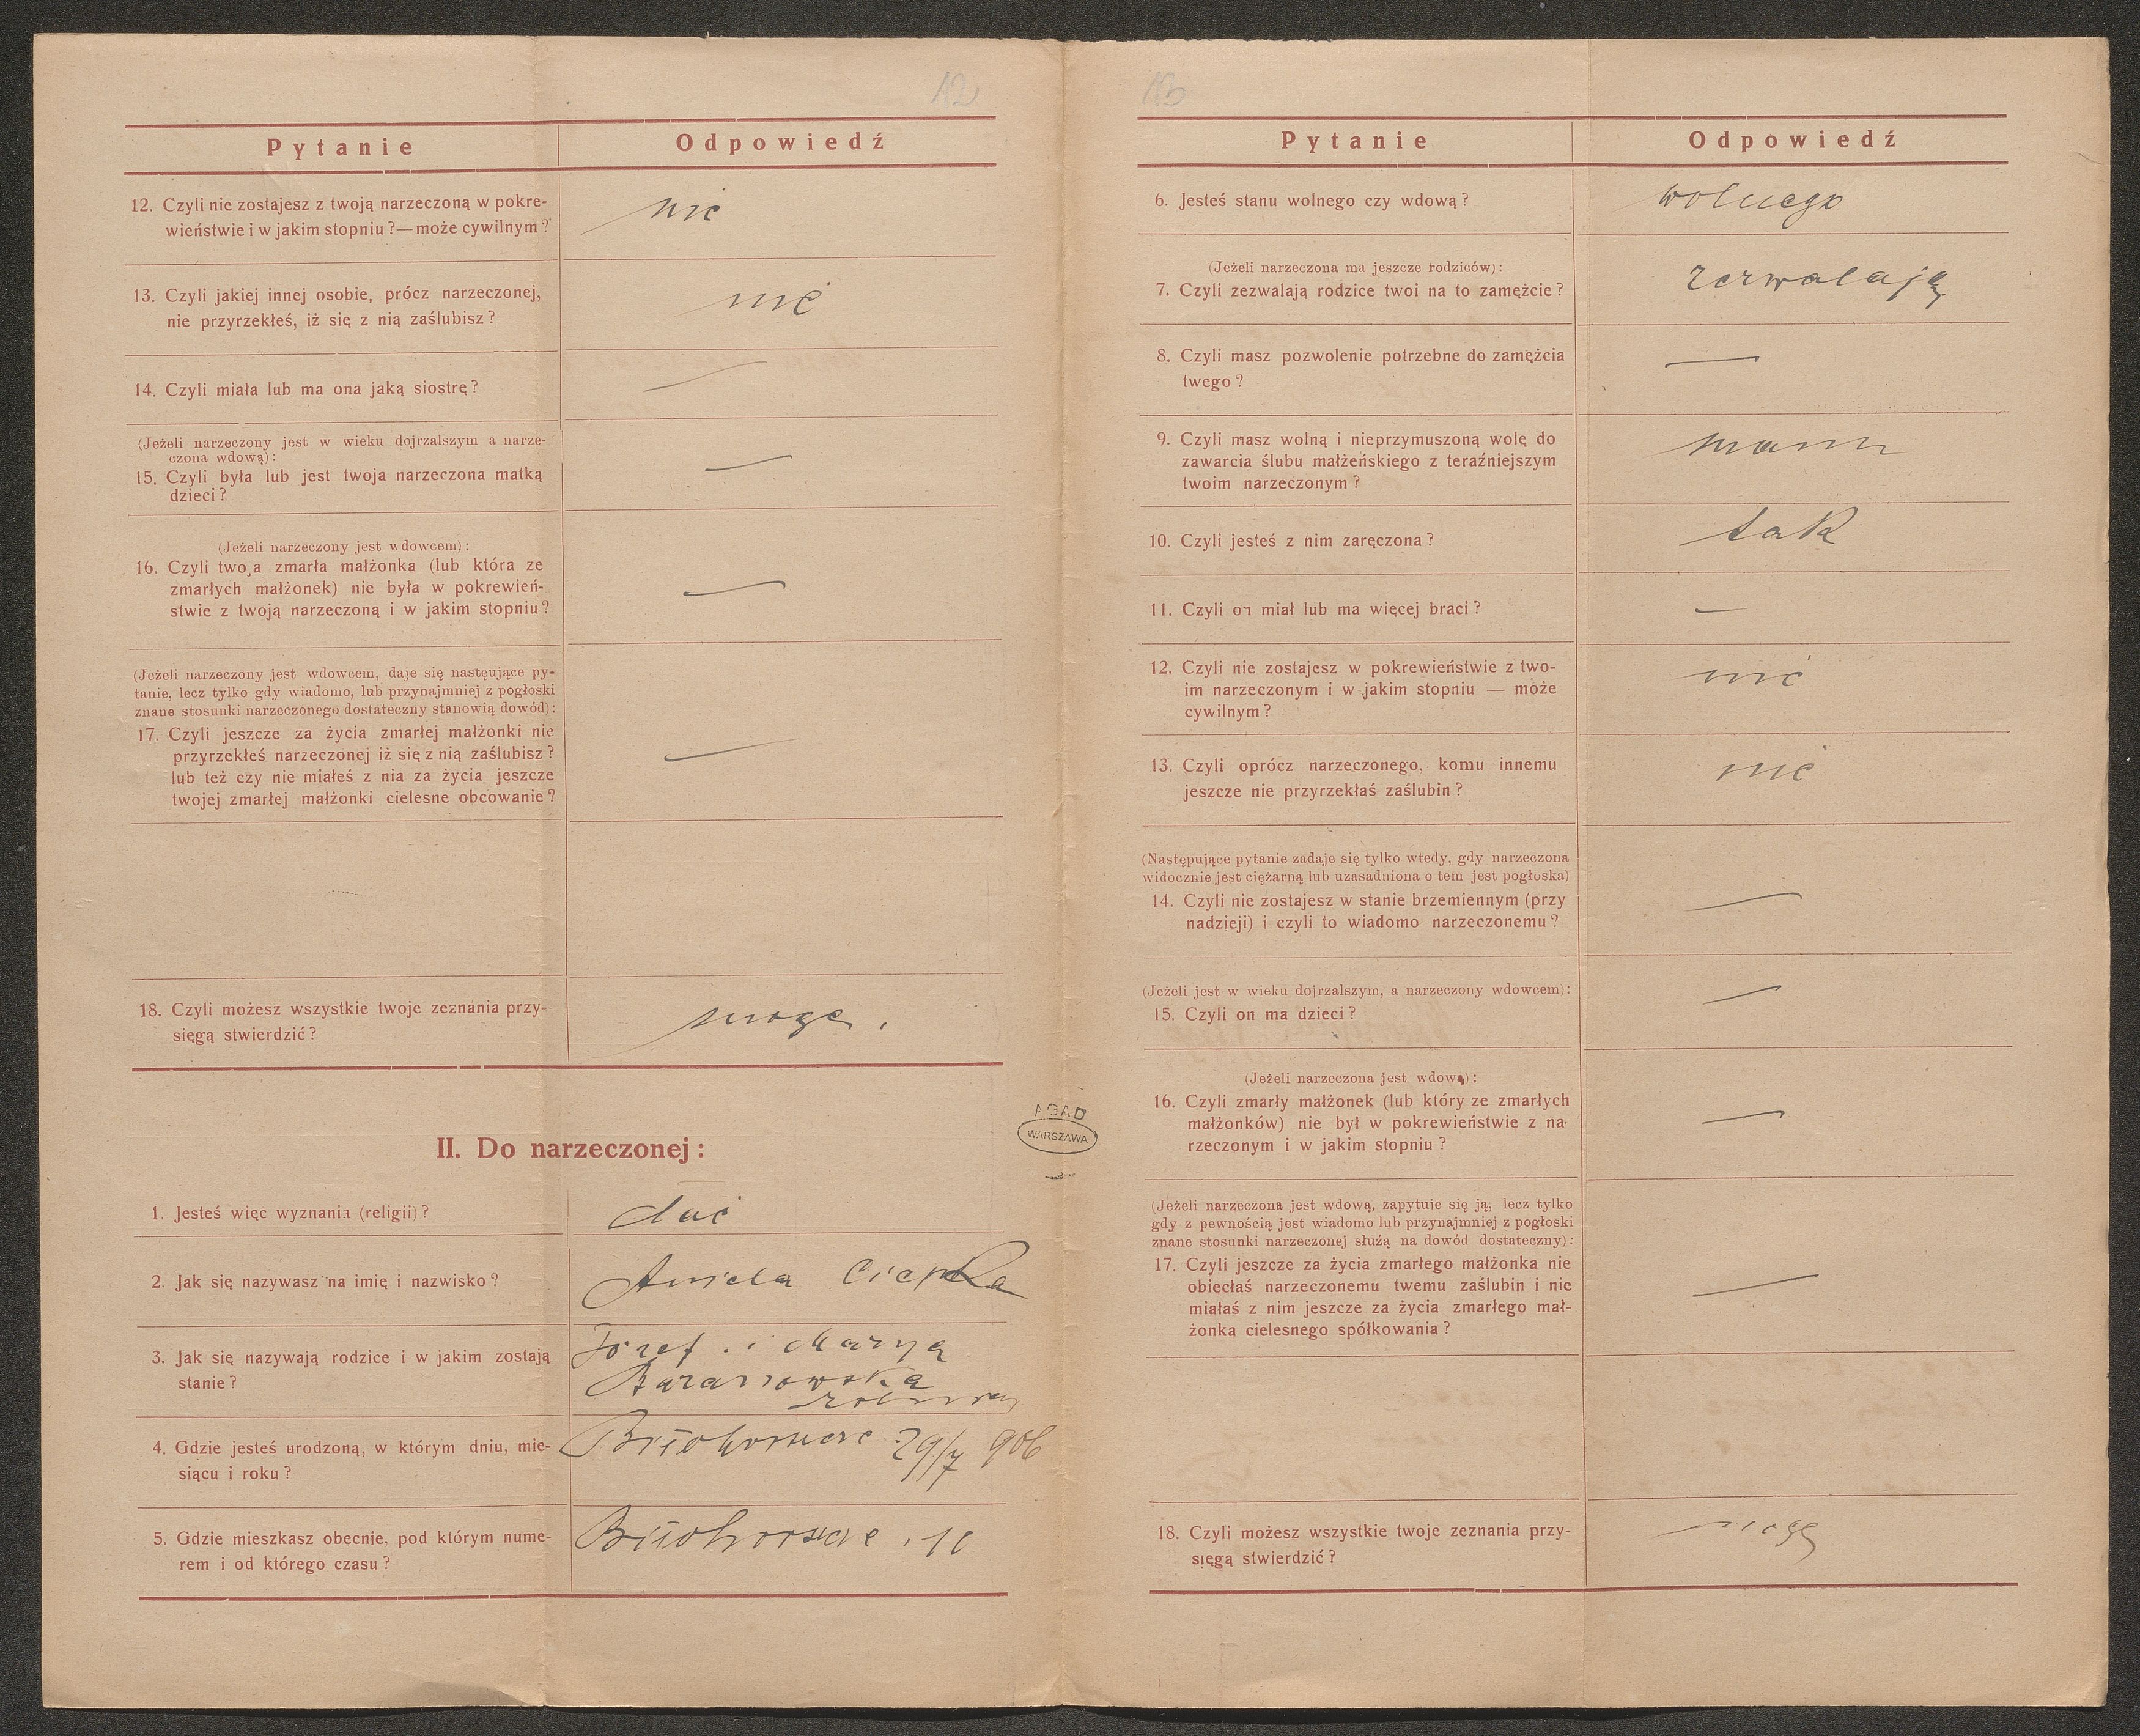 12
Pytanie
Odpowiedź
12. Czyli nie zostajesz z twoją narzeczoną w pokre-
wieństwie i w jakim stopniu?—może cywilnym?
nie
13. Czyli jakiej innej osobie, prócz narzeczonej,
nie przyrzekłeś, iż się z nią zaślubisz?
nie
14. Czyli miała lub ma ona jaką siostrę?
—
(Jeżeli narzeczony jest w wieku dojrzalszym a narze-
czona wdową):
15. Czyli była lub jest twoja narzeczona matką
dzieci?
—
(Jeżeli narzeczony jest wdowcem):
16. Czyli twoja zmarła małżonka (lub która ze
zmarłych małżonek) nie była w pokrewień-
stwie z twoją narzeczoną i w jakim stopniu?
—
(Jeżeli narzeczony jest wdowcem, daje się nastęujące py-
tanie, lecz tylko gdy wiadomo, lub przynajmniej z pogłoski
znane stosunki narzeczonego dostateczny stanowią dowód):
17. Czyli jeszcze za życia zmarłej małżonki nie
przyrzekłeś narzeczonej iż się z nią zaślubisz?
lub też czy nie miałeś z nia za życia jeszcze
twojej zmarłej małżonki cielesne obcowanie?
—
18. Czyli możesz wszystkie twoje zeznania przy-
sięgą stwierdzić?
mogę.
II. Do narzeczonej:
1. Jesteś więc wyznania (religii)?
2. Jak się nazywasz na imię i nazwisko?
Aniela Ciepła
3. Jak się nazywają rodzice i w jakim zostają
stanie?
Józef i Marya
Baranowska
4. Gdzie jesteś urodzoną, w którym dniu, mie-
siącu i roku?
Biłohorszcze 29/7 906
5. Gdzie mieszkasz obecnie, pod którym nume-
rem i od którego czasu?
Biłohorszcze
AGAD
WARSZAWA
13
Pytanie
Odpowiedź
6. Jesteś stanu wolnego czy wdową?
wolnego
(Jeżeli narzeczona ma jeszcze rodziców):
7. Czyli zezwalają rodzice twoi na to zamęźcie?
zezwalają
8. Czyli masz pozwolenie potrzebne do zamężcia
twego?
—
9. Czyli masz wolną i nieprzymuszoną wolę do
zawarcia ślubu małżeńskiego z teraźniejszym
twoim narzeczonym?
mam
10. Czyli jesteś z nim zaręczona?
tak
11. Czyli on miał lub ma więcej braci?
—
12. Czyli nie zostajesz w pokrewieństwie z two-
im narzeczonym i w jakim stopniu — może
cywilnym?
nie
13. Czyli oprócz narzeczonego, komu innemu
jeszcze nie przyrzekłaś zaślubin?
nie
(Następujące pytanie zadaje się tylko wtedy, gdy narzeczona
widocznie jest ciężarną lub uzasadniona o tem jest pogłoska)
14. Czyli nie zostajesz w stanie brzemiennym (przy
nadzieji) i czyli to wiadomo narzeczonemu?
—
(Jeżeli jest w wieku dojrzalszym, a narzeczony wdowcem):
15. Czyli on ma dzieci?
—
(Jeżeli narzeczona jest wdową):
16. Czyli zmarły małżonek (lub który ze zmarłych
małżonków) nie był w pokrewieństwie z na-
rzeczonym i w jakim stopniu?
—
(Jeżeli narzeczona jest wdową, zapytuie się ją, lecz tylko
gdy z pewnością jest wiadomo lub przynajmniej z pogłoski
znane stosunki narzeczonej służą na dowód dostateczny):
17. Czyli jeszcze za życia zmarłego małżonka nie
obiecłaś narzeczonemu twemu zaślubin i nie
miałaś z nim jeszcze za życia zmarłego mał-
żonka cielesnego spółkowania?
—
18. Czyli możesz wszystkie twoje zeznania przy-
sięgą stwierdzić?
mogę